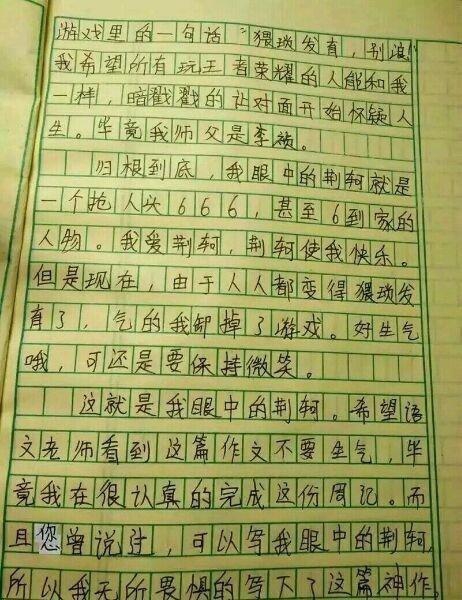 游戏里的一句话"猥琐发育,别浪"
我希望所有玩王者荣耀的人能和我
一样,暗戳戳的让对面开始怀疑人
生。毕竟我师父是李祯。
归根到底,我眼中的荆轲就是
一个抢人头666,甚至6到家的
人物。我爱荆轲,荆轲使我快乐。
但是现在,由于人人都变得猥琐发
育了,气的我卸掉了游戏。好生气
哦,可还是要保持微笑。
这就是我眼中的荆轲。希望语
文老师看到这篇作文不要生气,毕
竟我在很认真的完成这份周记。而
且您曾说过,可以写我眼中的荆轲,
所以我无所畏惧的写下了这篇神作。